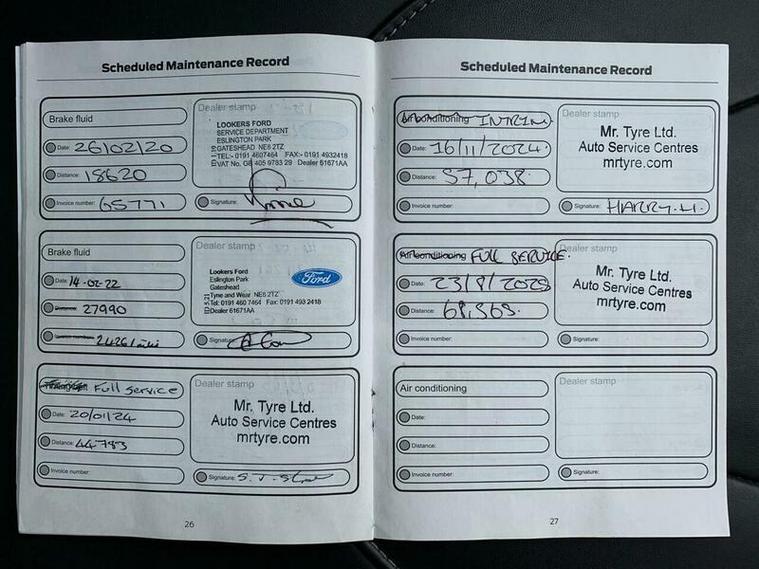 Scheduled Maintenance Record
Brake fluid
Date: 26/02/20
Distance: 18620
Invoice number: 65771
Dealer stamp
LOOKERS FORD
SERVICE DEPARTMENT
ESLINGTON PARK
GATESHEAD NE8 2TZ
TEL:- 0191 4607464 FAX:- 0191 4932418
VAT No. GB 405 9783 29 Dealer 61671AA
Signature:
Brake fluid
Date: 14-02-22
Distance: 27990
Invoice number:
Dealer stamp
Lookers Ford
Eslington Park
Gateshead
Tyne and Wear NE8 2TZ
Tel: 0191 460 7464 Fax: 0191 493 2418
Dealer 61671AA
Ford
Signature:
Full Service
Date: 20/01/24
Distance: 44783
Invoice number:
Dealer stamp
Mr. Tyre Ltd.
Auto Service Centres
mrtyre.com
Signature:
26
Scheduled Maintenance Record
Air conditioning INTRIM
Date: 16/11/2024
Distance: 57,038
Invoice number:
Dealer stamp
Mr. Tyre Ltd.
Auto Service Centres
mrtyre.com
Signature: HARRY.H.
Air conditioning FULL SERVICE.
Date: 23/8/2025
Distance: 68,365.
Invoice number:
Dealer stamp
Mr. Tyre Ltd.
Auto Service Centres
mrtyre.com
Signature:
Air conditioning
Date:
Distance:
Invoice number:
Dealer stamp
Signature:
27